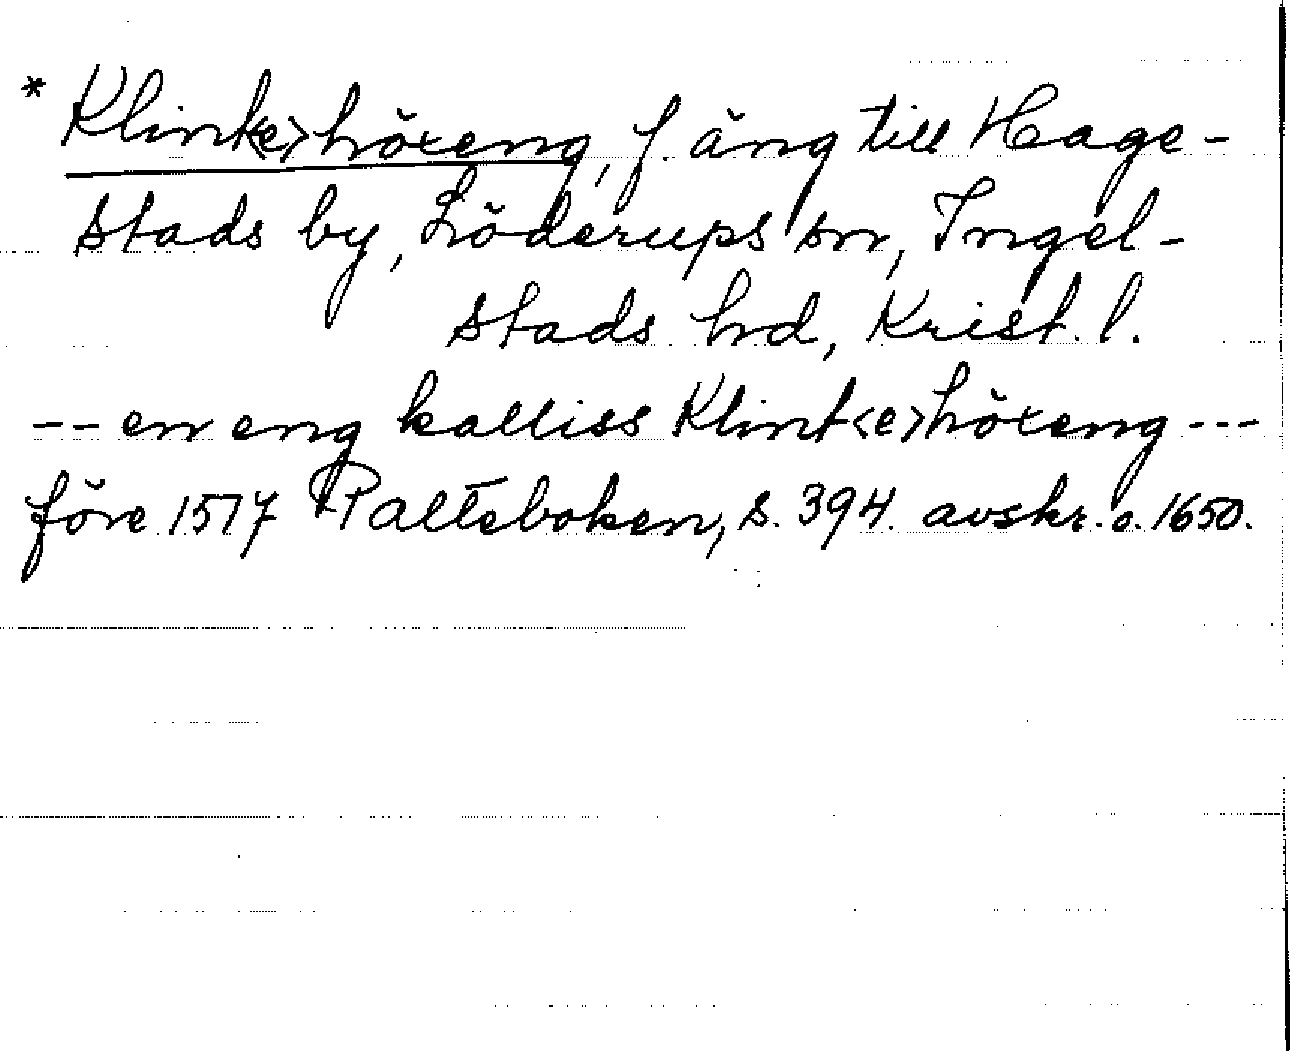 * Klink<e>höxeng, f. äng till Hage-
stads by, Löderups sn, Ingel-
stads hd, Krist. l.
-- en eng kalliss Klint<e>höxeng ---
före 1517 Palteboken, s. 394. avskr. o. 1650.